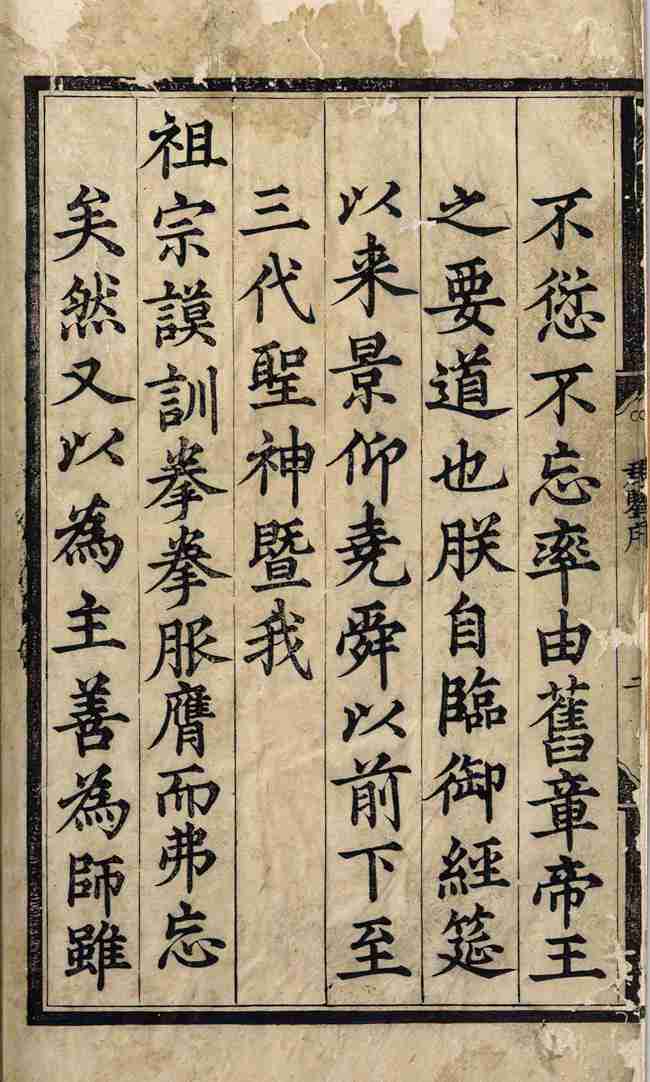 不愆不忘率由舊章帝王
之要道也朕自臨御經筵
以来景仰堯舜以前下至
三代聖神暨我
祖宗謨訓拳拳服膺而弗忘
矣然又以為主善為師雖
二